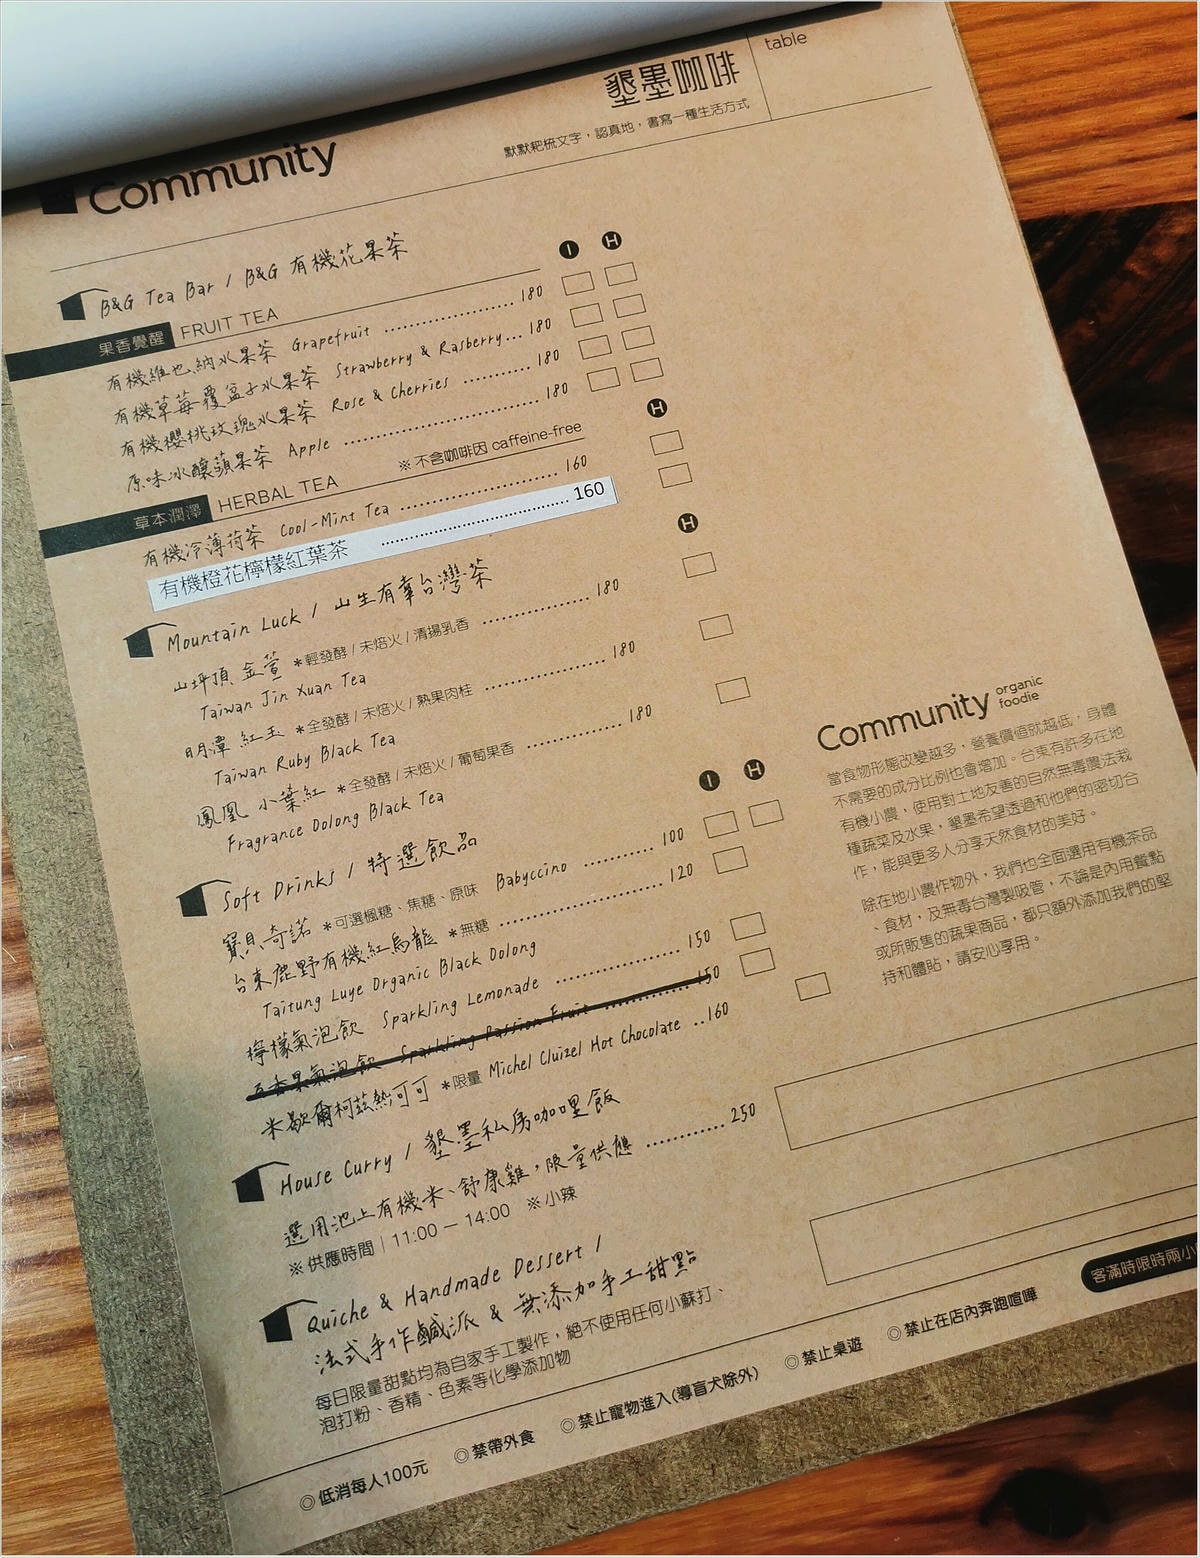 table
墾墨咖啡
默默耙梳文字，認真地，書寫一種生活方式
Community
B&G Tea Bar / B&G 有機花果茶
I H
果香覺醒 FRUIT TEA
有機維也納水果茶 Grapefruit 180
有機草莓覆盆子水果茶 Strawberry & Rasberry... 180
有機櫻桃玫瑰水果茶 Rose & Cherries 180
原味冰釀蘋果茶 Apple 180
H
草本潤澤 HERBAL TEA ※不含咖啡因 caffeine-free
有機冷薄荷茶 Cool-Mint Tea 160
有機橙花檸檬紅葉茶 160
H
Mountain Luck / 山生有幸台灣茶
山坪頂 金萱 *輕發酵 / 未焙火 / 清揚乳香 180
Taiwan Jin Xuan Tea
明潭 紅玉 *全發酵 / 未焙火 / 熟果肉桂 180
Taiwan Ruby Black Tea
鳳凰 小葉紅 *全發酵 / 未焙火 / 葡萄果香 180
Fragrance Oolong Black Tea
I H
Soft Drinks / 特選飲品
寶貝奇諾 *可選楓糖、焦糖、原味 Babyccino 100
台東鹿野有機紅烏龍 *無糖 120
Taitung Luye Organic Black Oolong
檸檬氣泡飲 Sparkling Lemonade 150
百香果氣泡飲 Sparkling Passion Fruit 150
米歇爾柯茲熱可可 *限量 Michel Cluizel Hot Chocolate ..160
House Curry / 墾墨私房咖哩飯
選用池上有機米、舒康雞，限量供應 250
※供應時間｜11:00 – 14:00 ※小辣
Quiche & Handmade Dessert /
法式手作鹹派 & 無添加手工甜點
每日限量甜點均為自家手工製作，絕不使用任何小蘇打、
泡打粉、香精、色素等化學添加物
Community organic foodie
當食物形態改變越多，營養價值就越低，身體
不需要的成分比例也會增加。台東有許多在地
有機小農，使用對土地友善的自然無毒農法栽
種蔬菜及水果，墾墨希望透過和他們的密切合
作，能與更多人分享天然食材的美好。
除在地小農作物外，我們也全面選用有機茶品
、食材，及無毒台灣製吸管，不論是內用餐點
或所販售的蔬果商品，都只額外添加我們的堅
持和體貼，請安心享用。
客滿時限時兩小
◎低消每人100元 ◎禁帶外食 ◎禁止寵物進入(導盲犬除外) ◎禁止桌遊 ◎禁止在店內奔跑喧嘩